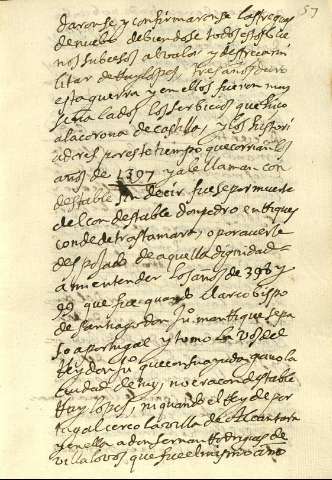 57
daronse y confirmaronse las treguas
de nuebo debiendose todos estos bue
nos subcesos al valor y destreça mi
litar de Ruy lopes, tres años duro
esta guerra y en ellos fueron muy
señalados los serbicios que hiço
a la corona de castilla, y los histori
adores por este tiempo que corrian los
años de 1397 ya le llaman con
destable sin decir fuese por muerte
del condestable don pedro enrriques
conde de trastamara, o por averle
despojado de aquella dignidad
a mi entender los años de 398 y
99 que fue quando el arcobispo
de Santiago don Ju.º manrrique se pa
so a portugal y tomo la vos del
Rey don Ju.º que con su ayuda gano la
ciudad de tuy, no era condestable
Ruy lopes, ni quando el Rey de por
tugal cerco la villa de Alcantara
y en ella a don fernan Rodrigues de
villalovos que fue el mismo año